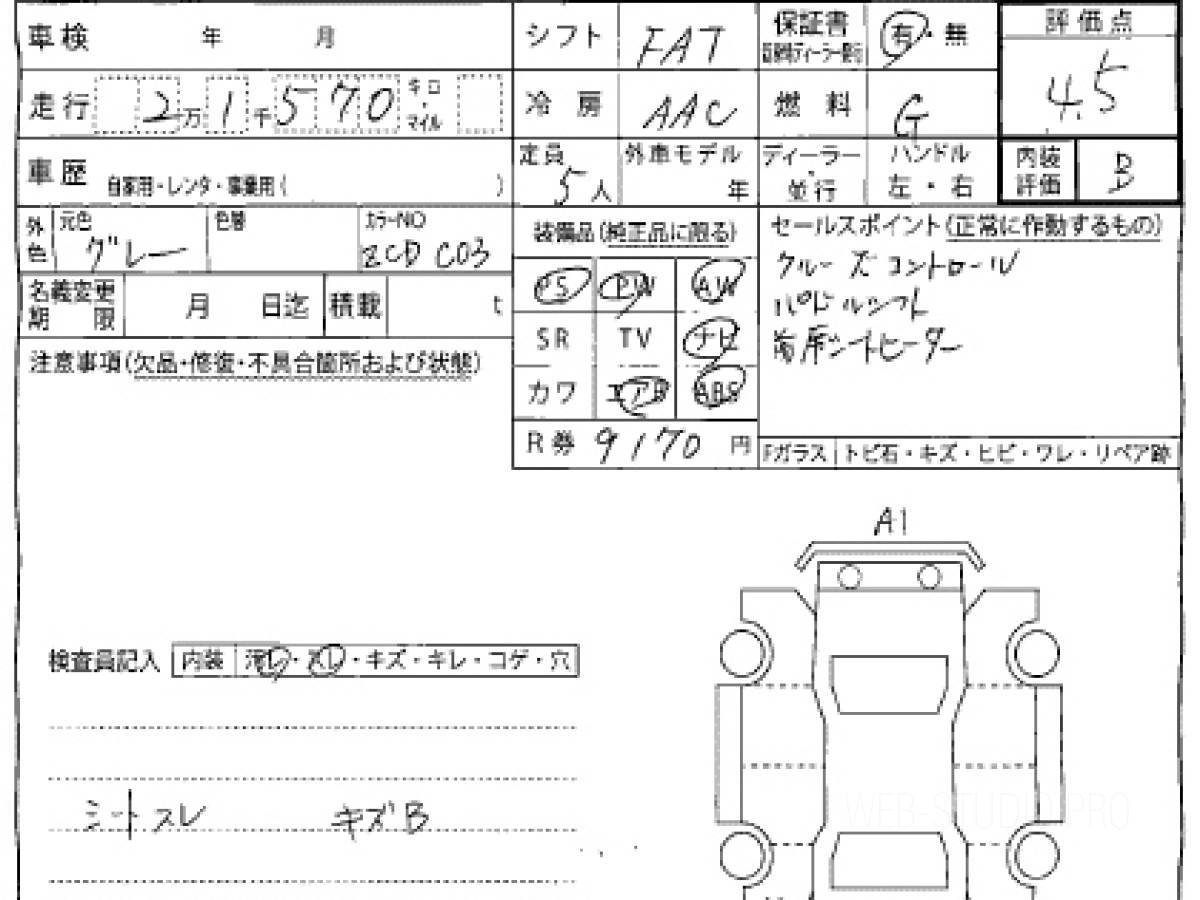 車検 年 月 シフト FAT 保証書 有・無 評価点
走行 2万1千570 キロ・マイル 冷房 AAC 燃料 G 4.5
車歴 自家用・レンタ・事業用( ) 定員 5人 外車モデル 年 ディーラー・並行 ハンドル 左・右 内装評価 B
外色 元色 グレー 色替 カラーNO ZCD C03
装備品(純正品に限る)
セールスポイント(正常に作動するもの)
名義変更期限 月 日迄 積載 t
PS PW AW
クルーズコントロール
SR TV ナビ
パドルシフト
カワ エアB ABS
前席シートヒーター
注意事項(欠品・修復・不具合箇所および状態)
R券 9170 円
Fガラス トビ石・キズ・ヒビ・ワレ・リペア跡
A1
検査員記入 内装 汚レ・スレ・キズ・キレ・コゲ・穴
シートスレ キズB
WEB-STUDIO.PRO